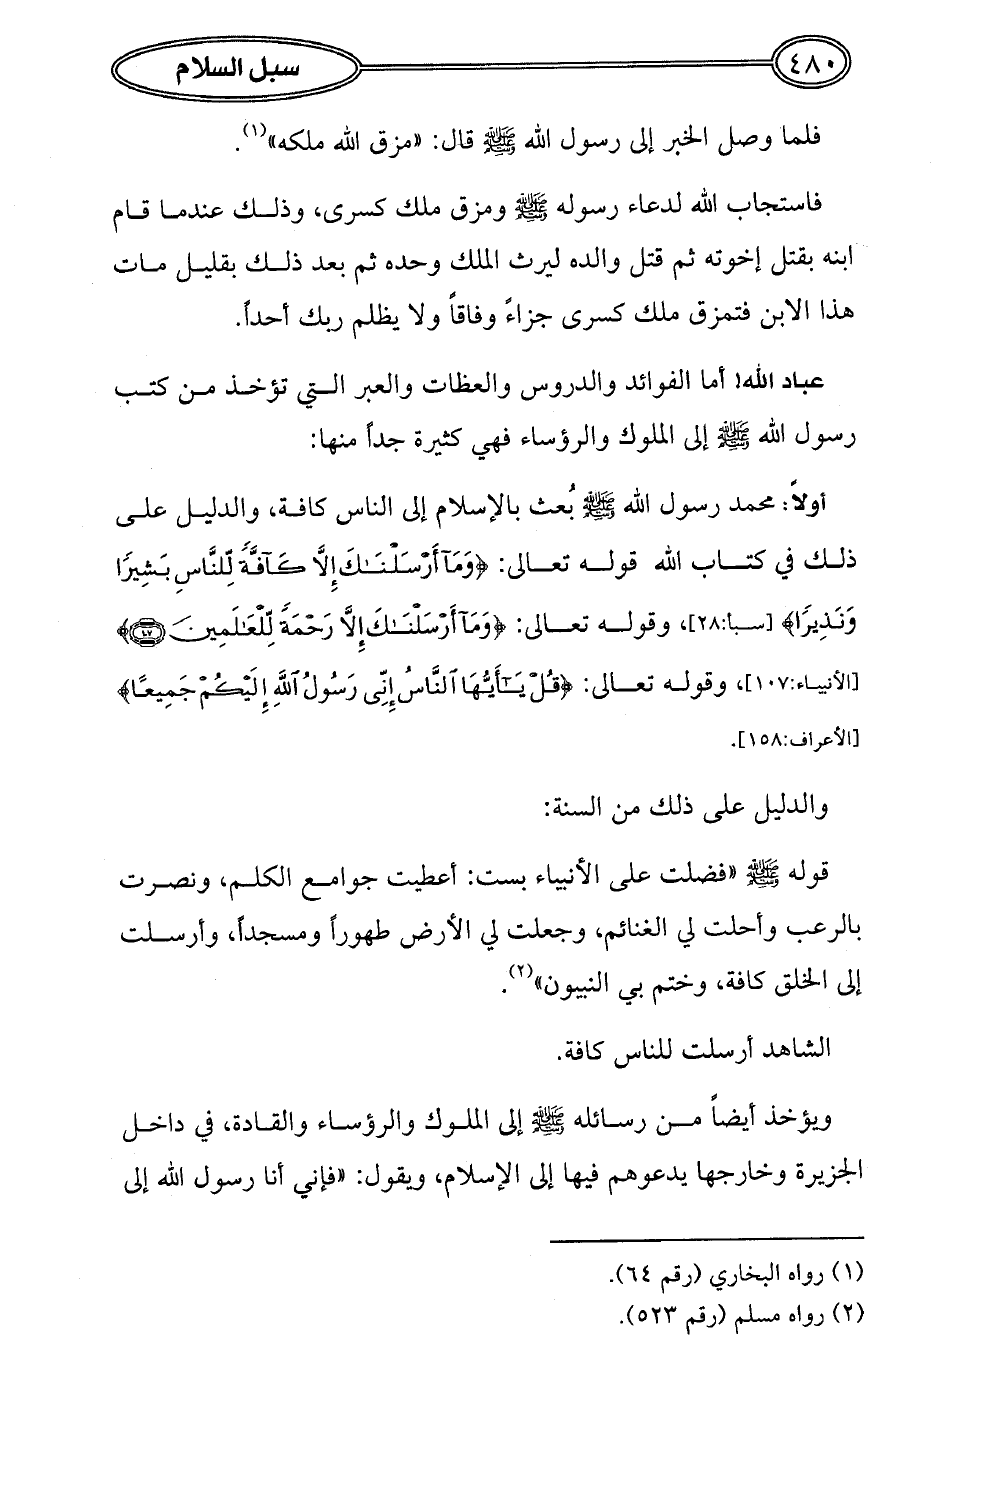 ٤٨٠
سبل السلام
فلما وصل الخبر إلى رسول الله ﷺ قال: «مزق الله ملكه»(١).
فاستجاب الله لدعاء رسوله ﷺ ومزق ملك كسرى، وذلك عندما قام
ابنه بقتل إخوته ثم قتل والده ليرث الملك وحده ثم بعد ذلك بقليل مات
هذا الابن فتمزق ملك كسرى جزاءً وفاقاً ولا يظلم ربك أحداً.
عباد الله! أما الفوائد والدروس والعظات والعبر التي تؤخذ من كتب
رسول الله ﷺ إلى الملوك والرؤساء فهي كثيرة جداً منها:
أولاً: محمد رسول الله ﷺ بُعث بالإسلام إلى الناس كافة، والدليل على
ذلك في كتاب الله قوله تعالى: ﴿وَمَآ أَرْسَلْنَٰكَ إِلَّا كَآفَّةً لِّلنَّاسِ بَشِيرًا
وَنَذِيرًا﴾ [سبأ:٢٨]، وقوله تعالى: ﴿وَمَآ أَرْسَلْنَٰكَ إِلَّا رَحْمَةً لِّلْعَٰلَمِينَ ١٠٧﴾
[الأنبياء:١٠٧]، وقوله تعالى: ﴿قُلْ يَٰٓأَيُّهَا ٱلنَّاسُ إِنِّى رَسُولُ ٱللَّهِ إِلَيْكُمْ جَمِيعًا﴾
[الأعراف:١٥٨].
والدليل على ذلك من السنة:
قوله ﷺ «فضلت على الأنبياء بست: أعطيت جوامع الكلم، ونصرت
بالرعب وأحلت لي الغنائم، وجعلت لي الأرض طهوراً ومسجداً، وأرسلت
إلى الخلق كافة، وختم بي النبيون»(٢).
الشاهد أرسلت للناس كافة.
ويؤخذ أيضاً من رسائله ﷺ إلى الملوك والرؤساء والقادة، في داخل
الجزيرة وخارجها يدعوهم فيها إلى الإسلام، ويقول: «فإني أنا رسول الله إلى
(١) رواه البخاري (رقم ٦٤).
(٢) رواه مسلم (رقم ٥٢٣).